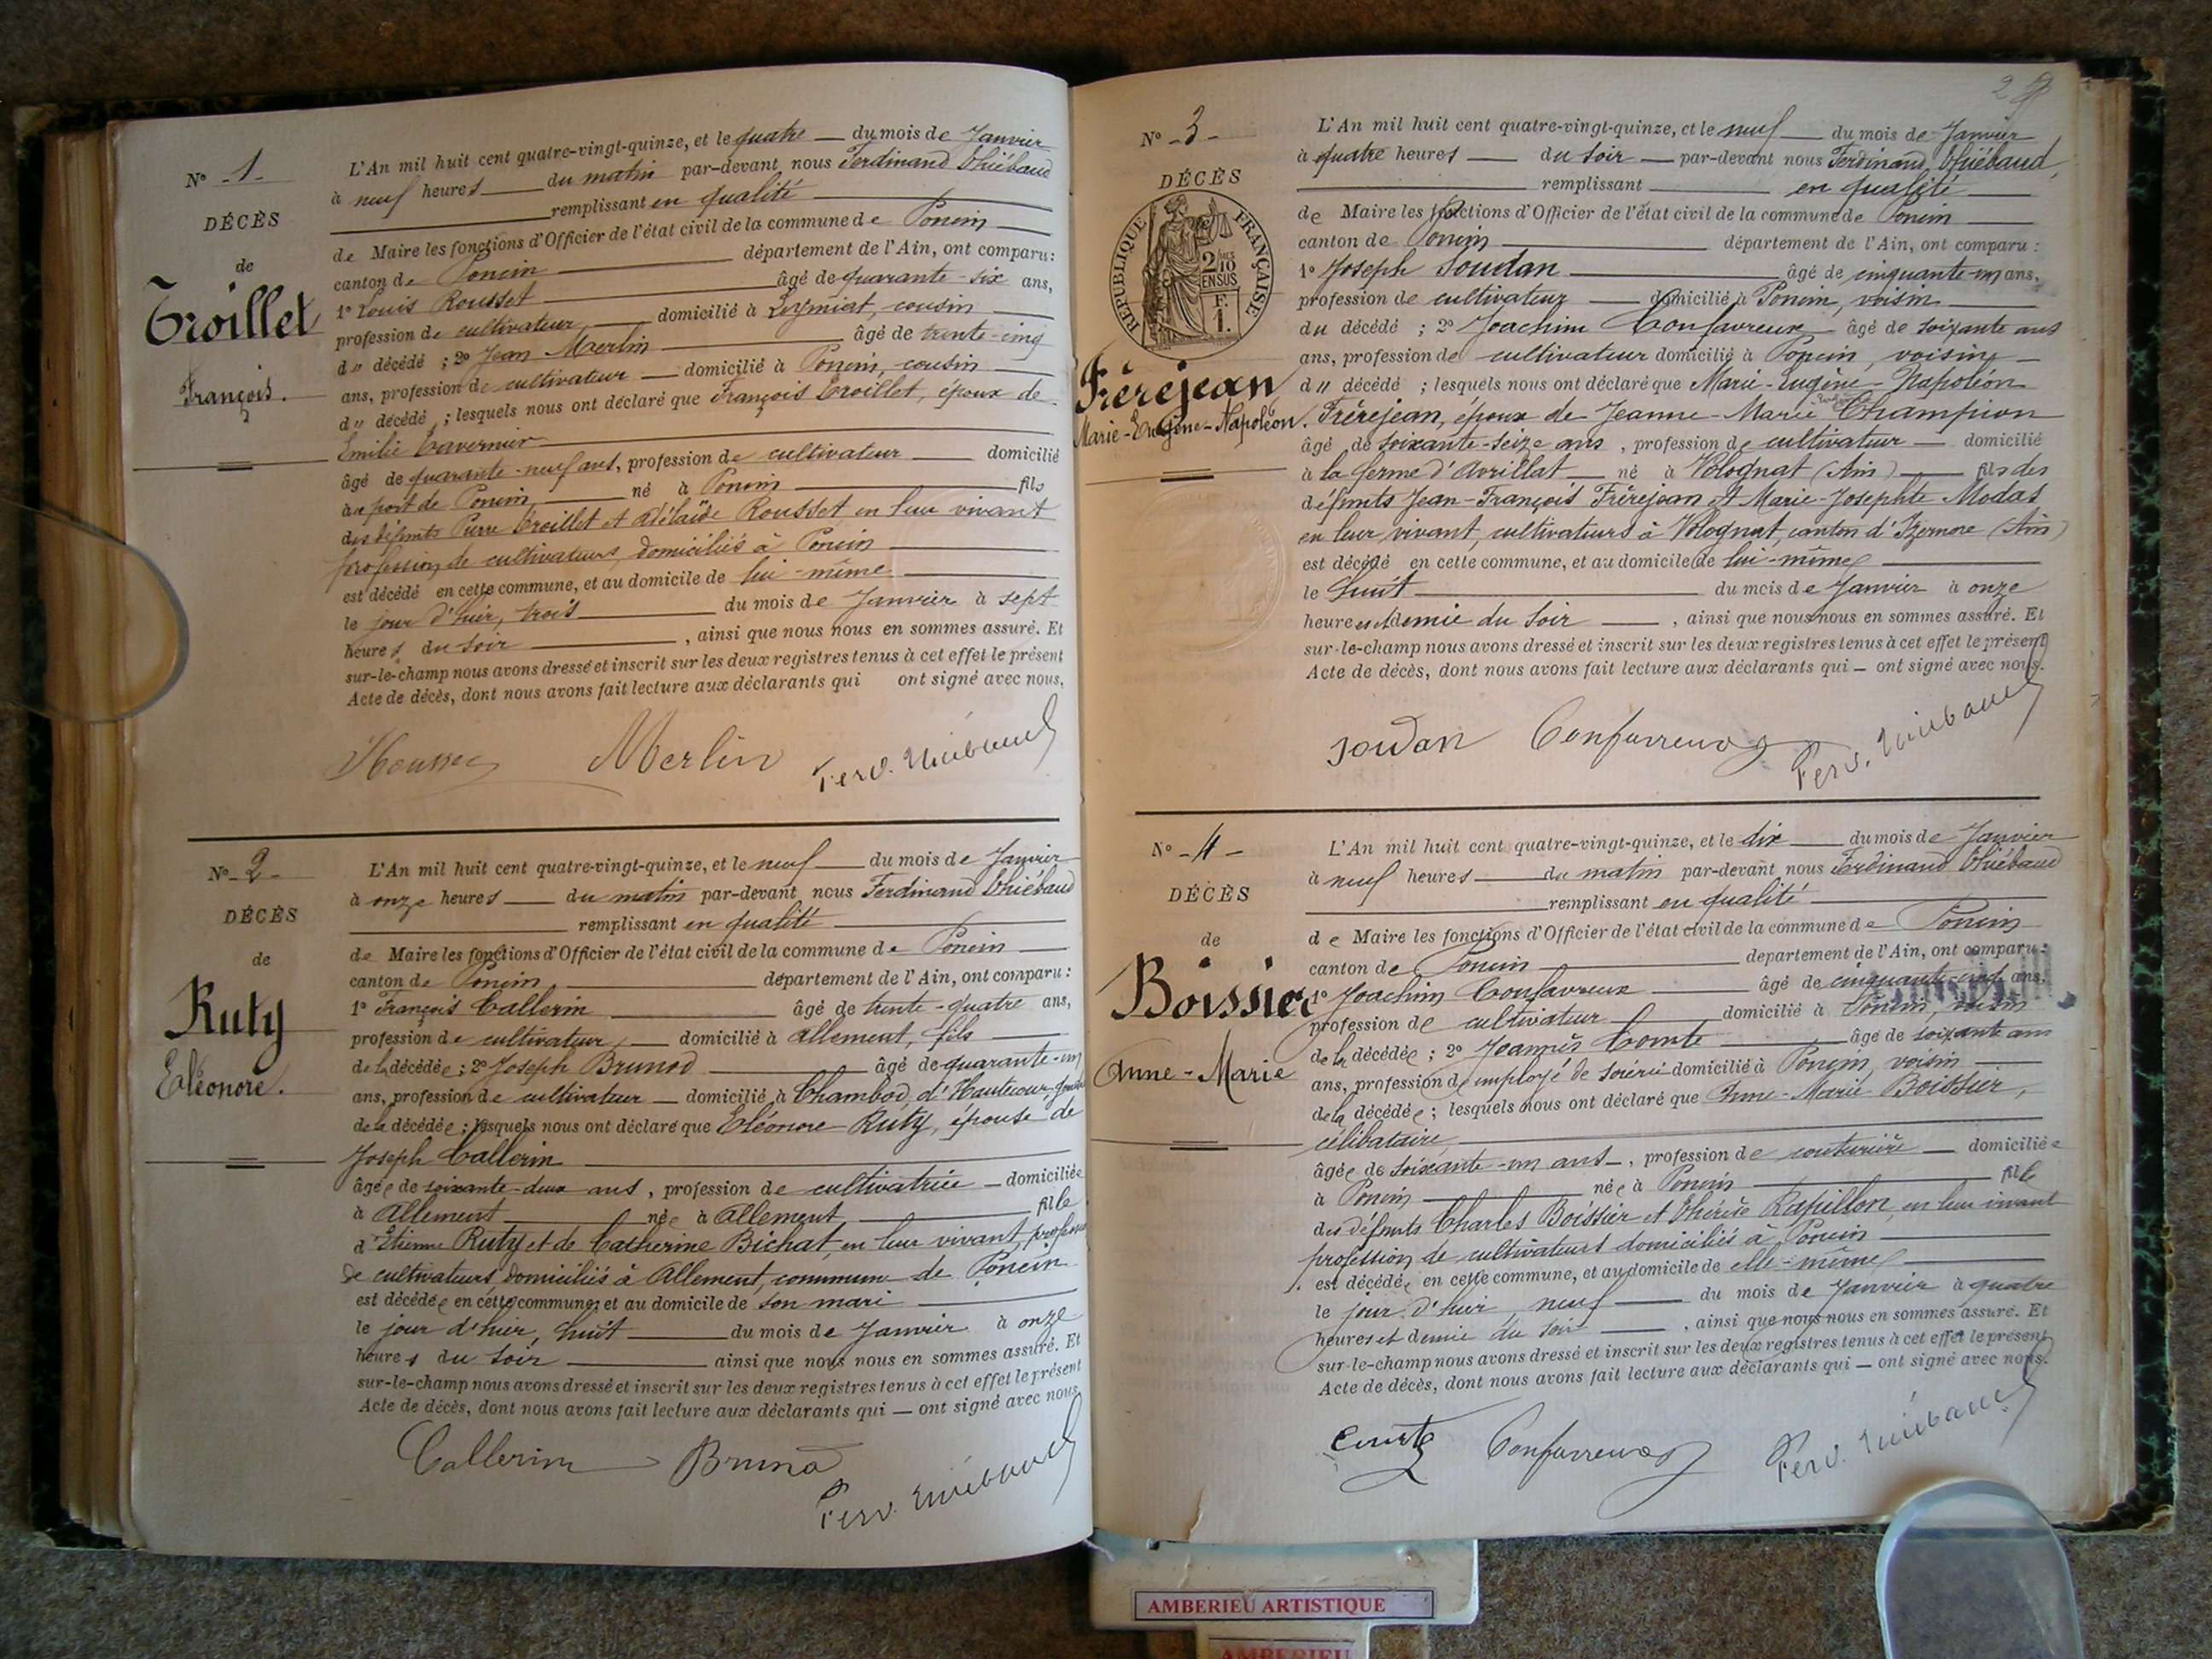 N° 1
DÉCÈS
de
Troillet
François.
L'An mil huit cent quatre-vingt-quinze, et le quatre du mois de Janvier
à neuf heures du matin par-devant nous Ferdinand Thiébaud
remplissant en qualité
de Maire les fonctions d'Officier de l'état civil de la commune de Poncin
canton de Poncin département de l'Ain, ont comparu :
1° Louis Rousset âgé de quarante-six ans,
profession de cultivateur domicilié à Leymiat, cousin
du décédé ; 2° Jean Merlin âgé de trente-cinq
ans, profession de cultivateur domicilié à Poncin, cousin
du décédé ; lesquels nous ont déclaré que François Troillet, époux de
Emilie Tavernier
âgé de quarante-neuf ans, profession de cultivateur domicilié
au port de Poncin né à Poncin fils
des défunts Pierre Troillet et Adélaïde Rousset en leur vivant
profession de cultivateurs, domiciliés à Poncin
est décédé en cette commune, et au domicile de lui-même
le jour d'hier, trois du mois de Janvier à sept
heures du soir, ainsi que nous nous en sommes assuré. Et
sur-le-champ nous avons dressé et inscrit sur les deux registres tenus à cet effet le présent
Acte de décès, dont nous avons fait lecture aux déclarants qui ont signé avec nous.
Merlin Ferd. Thiébaud
N° 2
DÉCÈS
de
Ruty
Eléonore.
L'An mil huit cent quatre-vingt-quinze, et le neuf du mois de Janvier
à onze heures du matin par-devant nous Ferdinand Thiébaud
remplissant en qualité
de Maire les fonctions d'Officier de l'état civil de la commune de Poncin
canton de Poncin département de l'Ain, ont comparu :
1° François Callerin âgé de trente-quatre ans,
profession de cultivateur domicilié à Allement, fils
de la décédée ; 2° Joseph Brunod âgé de quarante-un
ans, profession de cultivateur domicilié à Chambod, d'Hautecour,
de la décédée ; lesquels nous ont déclaré que Eléonore Ruty, épouse de
Joseph Callerin
âgée de soixante-deux ans, profession de cultivatrice domiciliée
à Allement née à Allement fille
d'Etienne Ruty et de Catherine Bichat, en leur vivant, profession
de cultivateurs, domiciliés à Allement, commune de Poncin
est décédée en cette commune, et au domicile de son mari
le jour d'hier, huit du mois de Janvier à onze
heures du soir ainsi que nous nous en sommes assuré. Et
sur-le-champ nous avons dressé et inscrit sur les deux registres tenus à cet effet le présent
Acte de décès, dont nous avons fait lecture aux déclarants qui — ont signé avec nous.
Callerin Brunod
Ferd. Thiébaud
N° 3
DÉCÈS
RÉPUBLIQUE FRANÇAISE
2/10
EN SUS
F.
1.
Frèrejean
Marie-Eugène-Napoléon.
L'An mil huit cent quatre-vingt-quinze, et le neuf du mois de Janvier
à quatre heures du soir par-devant nous Ferdinand Thiébaud,
remplissant en qualité
de Maire les fonctions d'Officier de l'état civil de la commune de Poncin
canton de Poncin département de l'Ain, ont comparu :
1° Joseph Joudan âgé de cinquante-un ans,
profession de cultivateur domicilié à Poncin, voisin
du décédé ; 2° Joachim Confavreux âgé de soixante ans
ans, profession de cultivateur domicilié à Poncin, voisin
du décédé ; lesquels nous ont déclaré que Marie-Eugène-Napoléon
Frèrejean, époux de Jeanne-Marie Champion
âgé de soixante-seize ans, profession de cultivateur domicilié
à la ferme d'Avrillat né à Volognat (Ain) fils des
défunts Jean-François Frèrejean et Marie-Josephte Modas
en leur vivant, cultivateurs à Volognat, canton d'Izernore (Ain)
est décédé en cette commune, et au domicile de lui-même
le huit du mois de Janvier à onze
heures et demie du soir, ainsi que nous nous en sommes assuré. Et
sur-le-champ nous avons dressé et inscrit sur les deux registres tenus à cet effet le présent
Acte de décès, dont nous avons fait lecture aux déclarants qui — ont signé avec nous.
Joudan Confavreux Ferd. Thiébaud
N° 4
DÉCÈS
de
Boissier
Anne-Marie
L'An mil huit cent quatre-vingt-quinze, et le dix du mois de Janvier
à neuf heures du matin par-devant nous Ferdinand Thiébaud
remplissant en qualité
de Maire les fonctions d'Officier de l'état civil de la commune de Poncin
canton de Poncin département de l'Ain, ont comparu :
1° Joachim Confavreux âgé de cinquante-cinq ans,
profession de cultivateur domicilié à Poncin, voisin
de la décédée ; 2° Joannès Comte âgé de soixante ans
ans, profession d'employé de soierie domicilié à Poncin, voisin
de la décédée ; lesquels nous ont déclaré que Anne-Marie Boissier,
célibataire
âgée de soixante-un ans, profession de couturière domiciliée
à Poncin née à Poncin fille
des défunts Charles Boissier et Thérèse Rapillon, en leur vivant
profession de cultivateurs domiciliés à Poncin
est décédée en cette commune, et au domicile de elle-même
le jour d'hier, neuf du mois de Janvier à quatre
heures et demie du soir, ainsi que nous nous en sommes assuré. Et
sur-le-champ nous avons dressé et inscrit sur les deux registres tenus à cet effet le présent
Acte de décès, dont nous avons fait lecture aux déclarants qui — ont signé avec nous.
Comte Confavreux Ferd. Thiébaud
AMBERIEU ARTISTIQUE
AMBERIEU